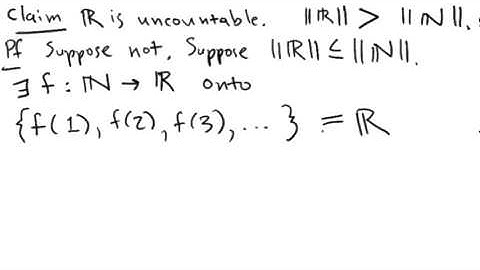 Claim ℝ is uncountable. ||ℝ|| > ||ℕ||.
Pf Suppose not. Suppose ||ℝ|| ≤ ||ℕ||.
∃ f : ℕ → ℝ onto
{f(1), f(2), f(3), ... } = ℝ